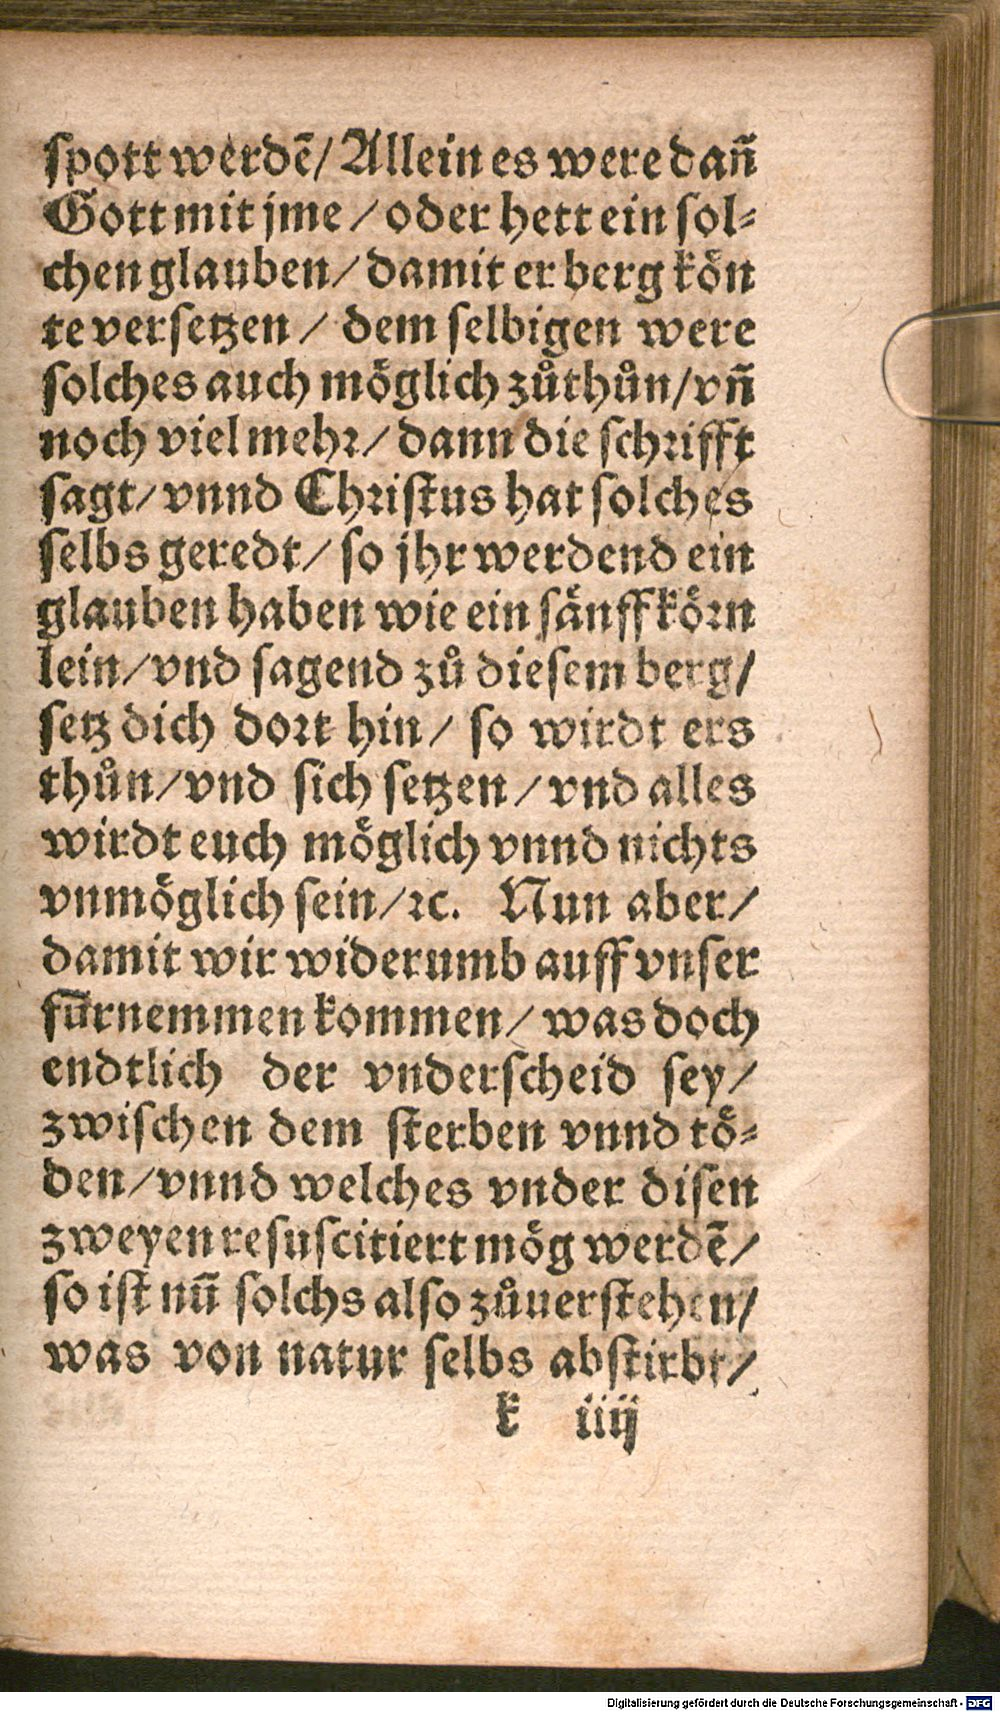 spott werdē/ Allein es were dañ
Gott mit jme / oder hett ein sol-
chen glauben/ damit er berg kön
te versetzen / dem selbigen were
solches auch möglich zůthůn/ vñ
noch viel mehr/ dann die schrifft
sagt/ vnnd Christus hat solches
selbs geredt/ so jhr werdend ein
glauben haben wie ein sänffkörn
lein/ vnd sagend zů diesem berg/
setz dich dort hin/ so wirdt ers
thůn/ vnd sich setzen/ vnd alles
wirdt euch möglich vnnd nichts
vnmöglich sein/ ꝛc. Nun aber/
damit wir widerumb auff vnser
fürnemmen kommen/ was doch
endtlich der vnderscheid sey/
zwischen dem sterben vnnd tö-
den/ vnnd welches vnder disen
zweyen resuscitiert mög werdē/
so ist nū solchs also zůuerstehen/
was von natur selbs abstirbt/
k iiij
Digitalisierung gefördert durch die Deutsche Forschungsgemeinschaft - DFG